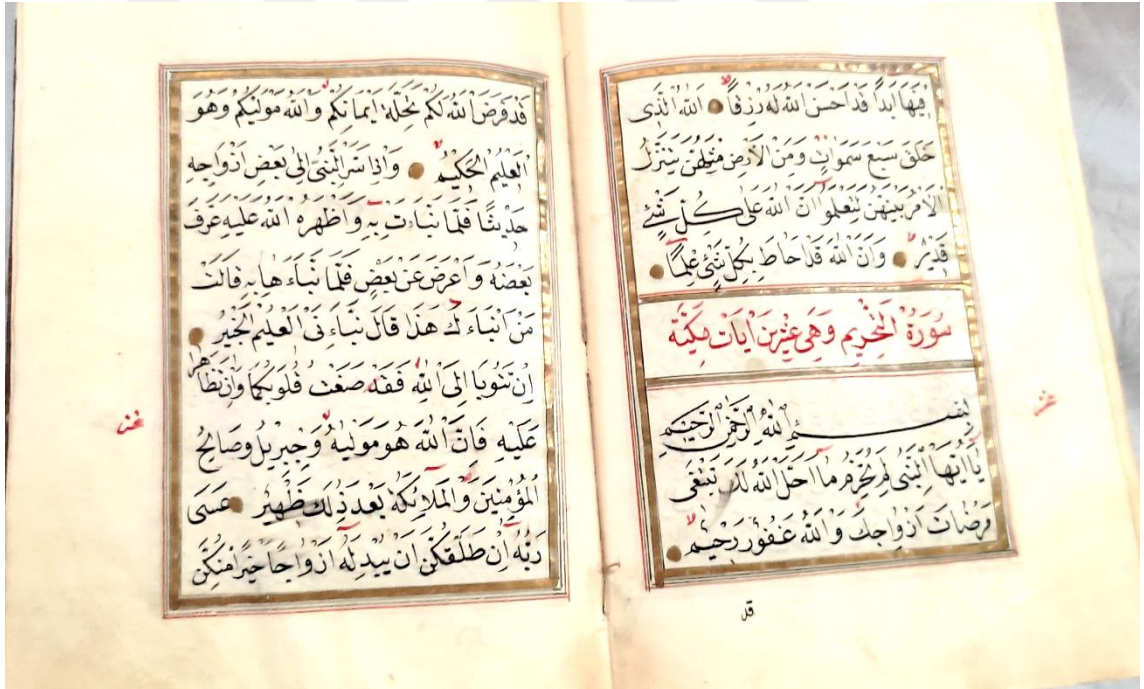 فِيهَا اَبَدًا قَدْ اَحْسَنَ اللهُ لَهُ رِزْقًا اَللهُ الَّذٖى
خَلَقَ سَبْعَ سَمٰوَاتٍ وَمِنَ الْاَرْضِ مِثْلَهُنَّ يَتَنَزَّلُ
الْاَمْرُ بَيْنَهُنَّ لِتَعْلَمُوا اَنَّ اللهَ عَلٰى كُلِّ شَىْءٍ
قَدٖيرٌ وَاَنَّ اللهَ قَدْ اَحَاطَ بِكُلِّ شَىْءٍ عِلْمًا
سُورَةُ التَّحْرِيمِ وَهِىَ عِشْرِينَ اٰيَات مَكِّيَّة
بِسْمِ اللهِ الرَّحْمٰنِ الرَّحِيمِ
يَا اَيُّهَا النَّبِىُّ لِمَ تُحَرِّمُ مَا اَحَلَّ اللهُ لَكَ تَبْتَغٖى
مَرْضَاتَ اَزْوَاجِكَ وَاللهُ غَفُورٌ رَحٖيمٌ
عشر
قد
قَدْ فَرَضَ اللهُ لَكُمْ تَحِلَّةَ اَيْمَانِكُمْ وَاللهُ مَوْلٰيكُمْ وَهُوَ
الْعَلٖيمُ الْحَكٖيمُ وَاِذْ اَسَرَّ النَّبِىُّ اِلٰى بَعْضِ اَزْوَاجِهٖ
حَدٖيثًا فَلَمَّا نَبَّاَتْ بِهٖ وَاَظْهَرَهُ اللهُ عَلَيْهِ عَرَّفَ
بَعْضَهُ وَاَعْرَضَ عَنْ بَعْضٍ فَلَمَّا نَبَّاَهَا بِهٖ قَالَتْ
مَنْ اَنْبَاَكَ هٰذَا قَالَ نَبَّاَنِىَ الْعَلٖيمُ الْخَبٖيرُ
اِنْ تَتُوبَا اِلَى اللهِ فَقَدْ صَغَتْ قُلُوبُكُمَا وَاِنْ تَظَاهَرَا
عَلَيْهِ فَاِنَّ اللهَ هُوَ مَوْلٰيهُ وَجِبْرٖيلُ وَصَالِحُ
الْمُؤْمِنٖينَ وَالْمَلٰئِكَةُ بَعْدَ ذٰلِكَ ظَهٖيرٌ عَسٰى
رَبُّهُ اِنْ طَلَّقَكُنَّ اَنْ يُبْدِلَهُ اَزْوَاجًا خَيْرًا مِنْكُنَّ